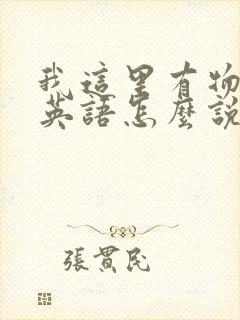 我這里有物
英語怎麼說
張貫民